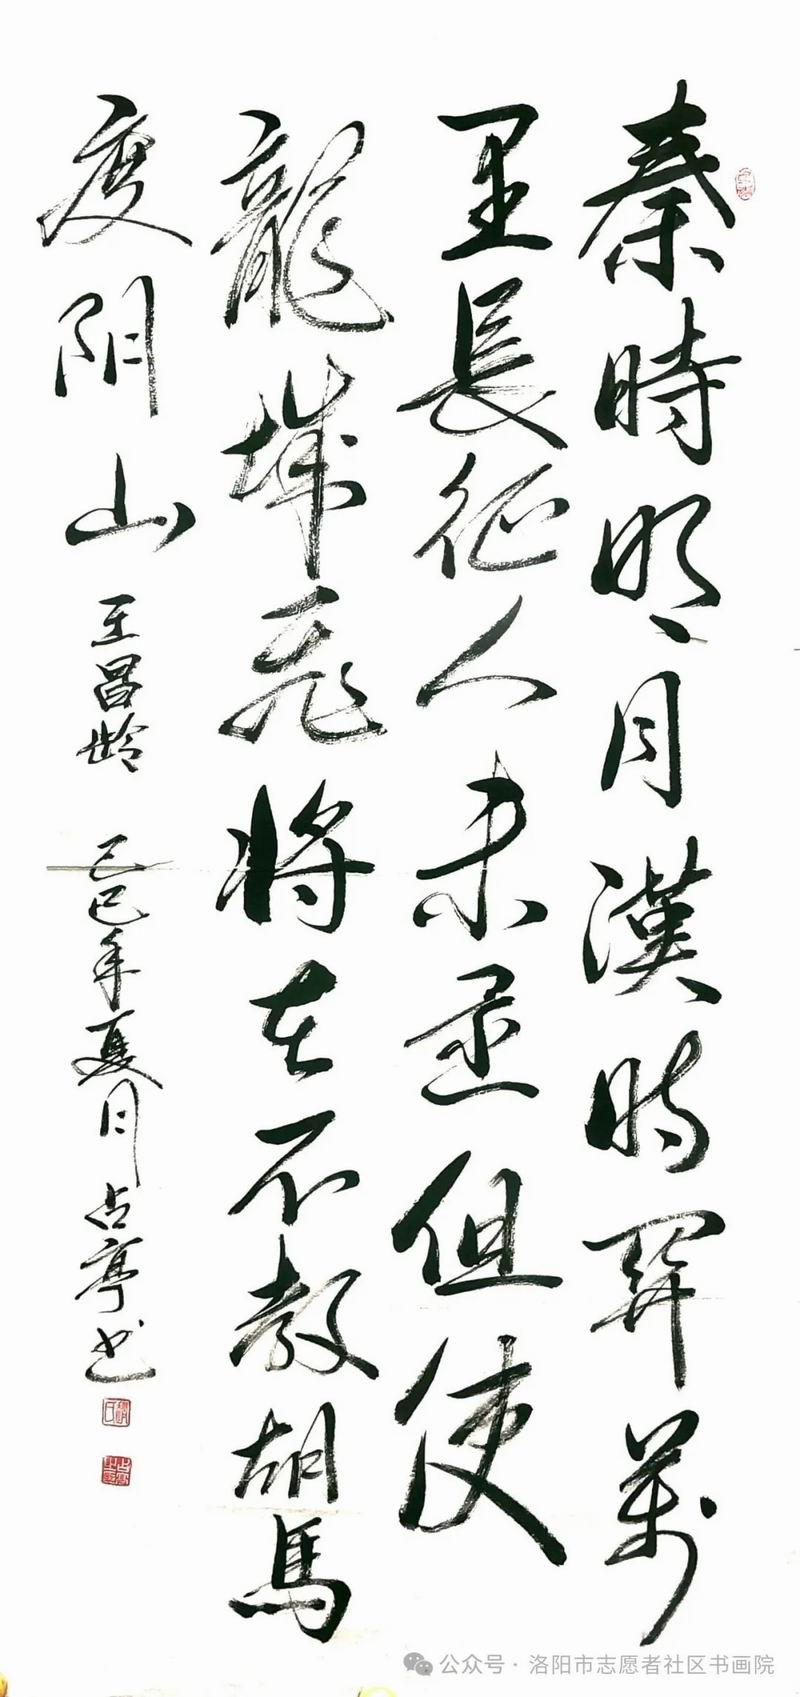 秦時明月漢時關萬
里長征人未還但使
龍城飛將在不教胡馬
度阴山 王昌龄 乙巳年夏月占亭书
公众号 · 洛阳市志愿者社区书画院